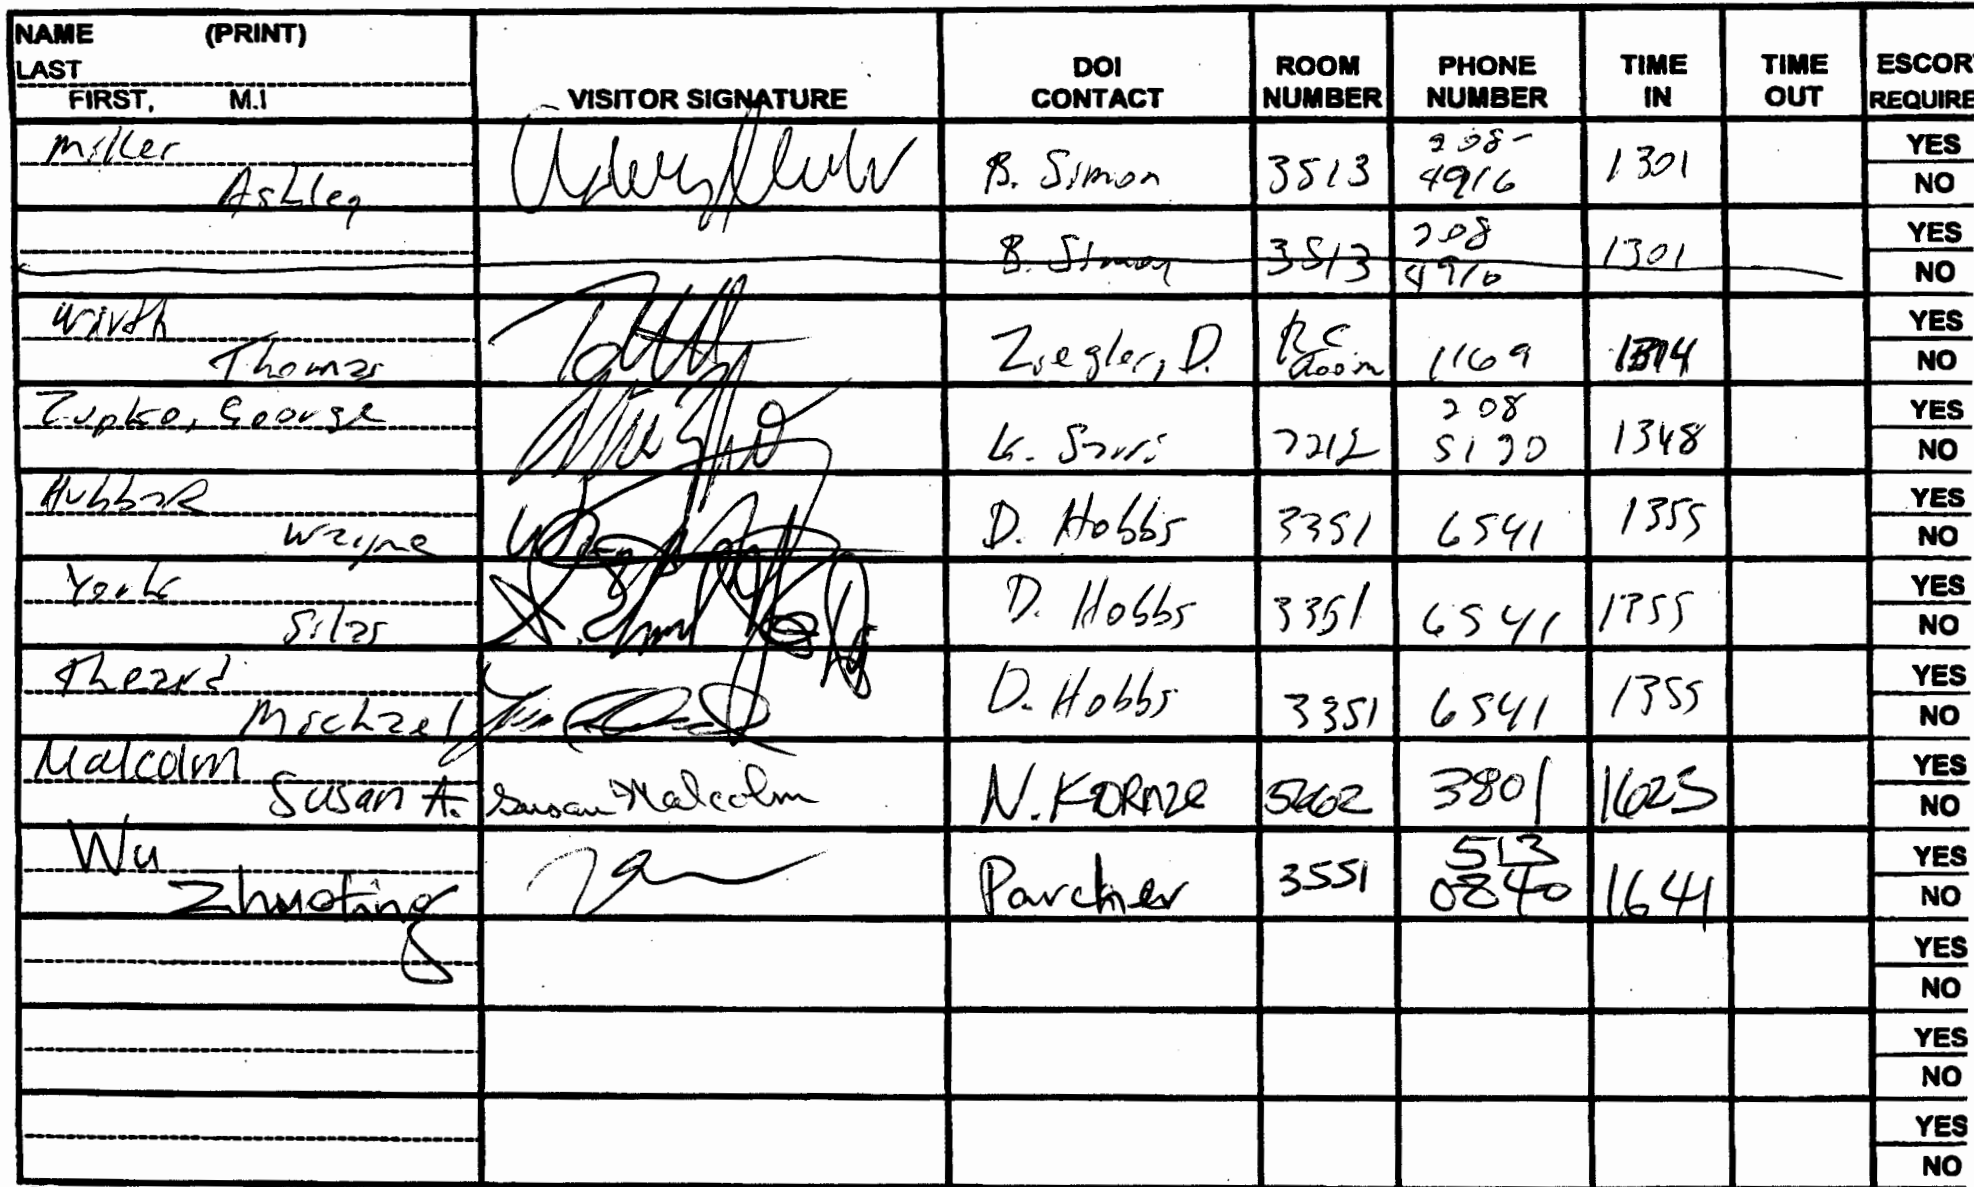 NAME (PRINT)
LAST
FIRST, M.I
VISITOR SIGNATURE
DOI CONTACT
ROOM NUMBER
PHONE NUMBER
TIME IN
TIME OUT
ESCOR
REQUIRE
Miller
Ashley
B. Simon 3513 208-4916 1301 YES NO
B. Simon 3513 208 4916 1301 YES NO
Wirth
Thomas
Ziegler, D. Room 1169 YES NO
Zupko, George
K. 208 1348 YES NO
Wayne
D. Hobbs 3351 6541 1355 YES NO
York
Silas
D. Hobbs 3351 6541 1355 YES NO
Theard
Michael
D. Hobbs 3351 6541 1355 YES NO
Malcolm
Susan A. Susan Malcolm N. KORNZE 3801 1625 YES NO
Wu
Zhuoting
3551 513 0840 1641 YES NO
YES
NO
YES
NO
YES
NO